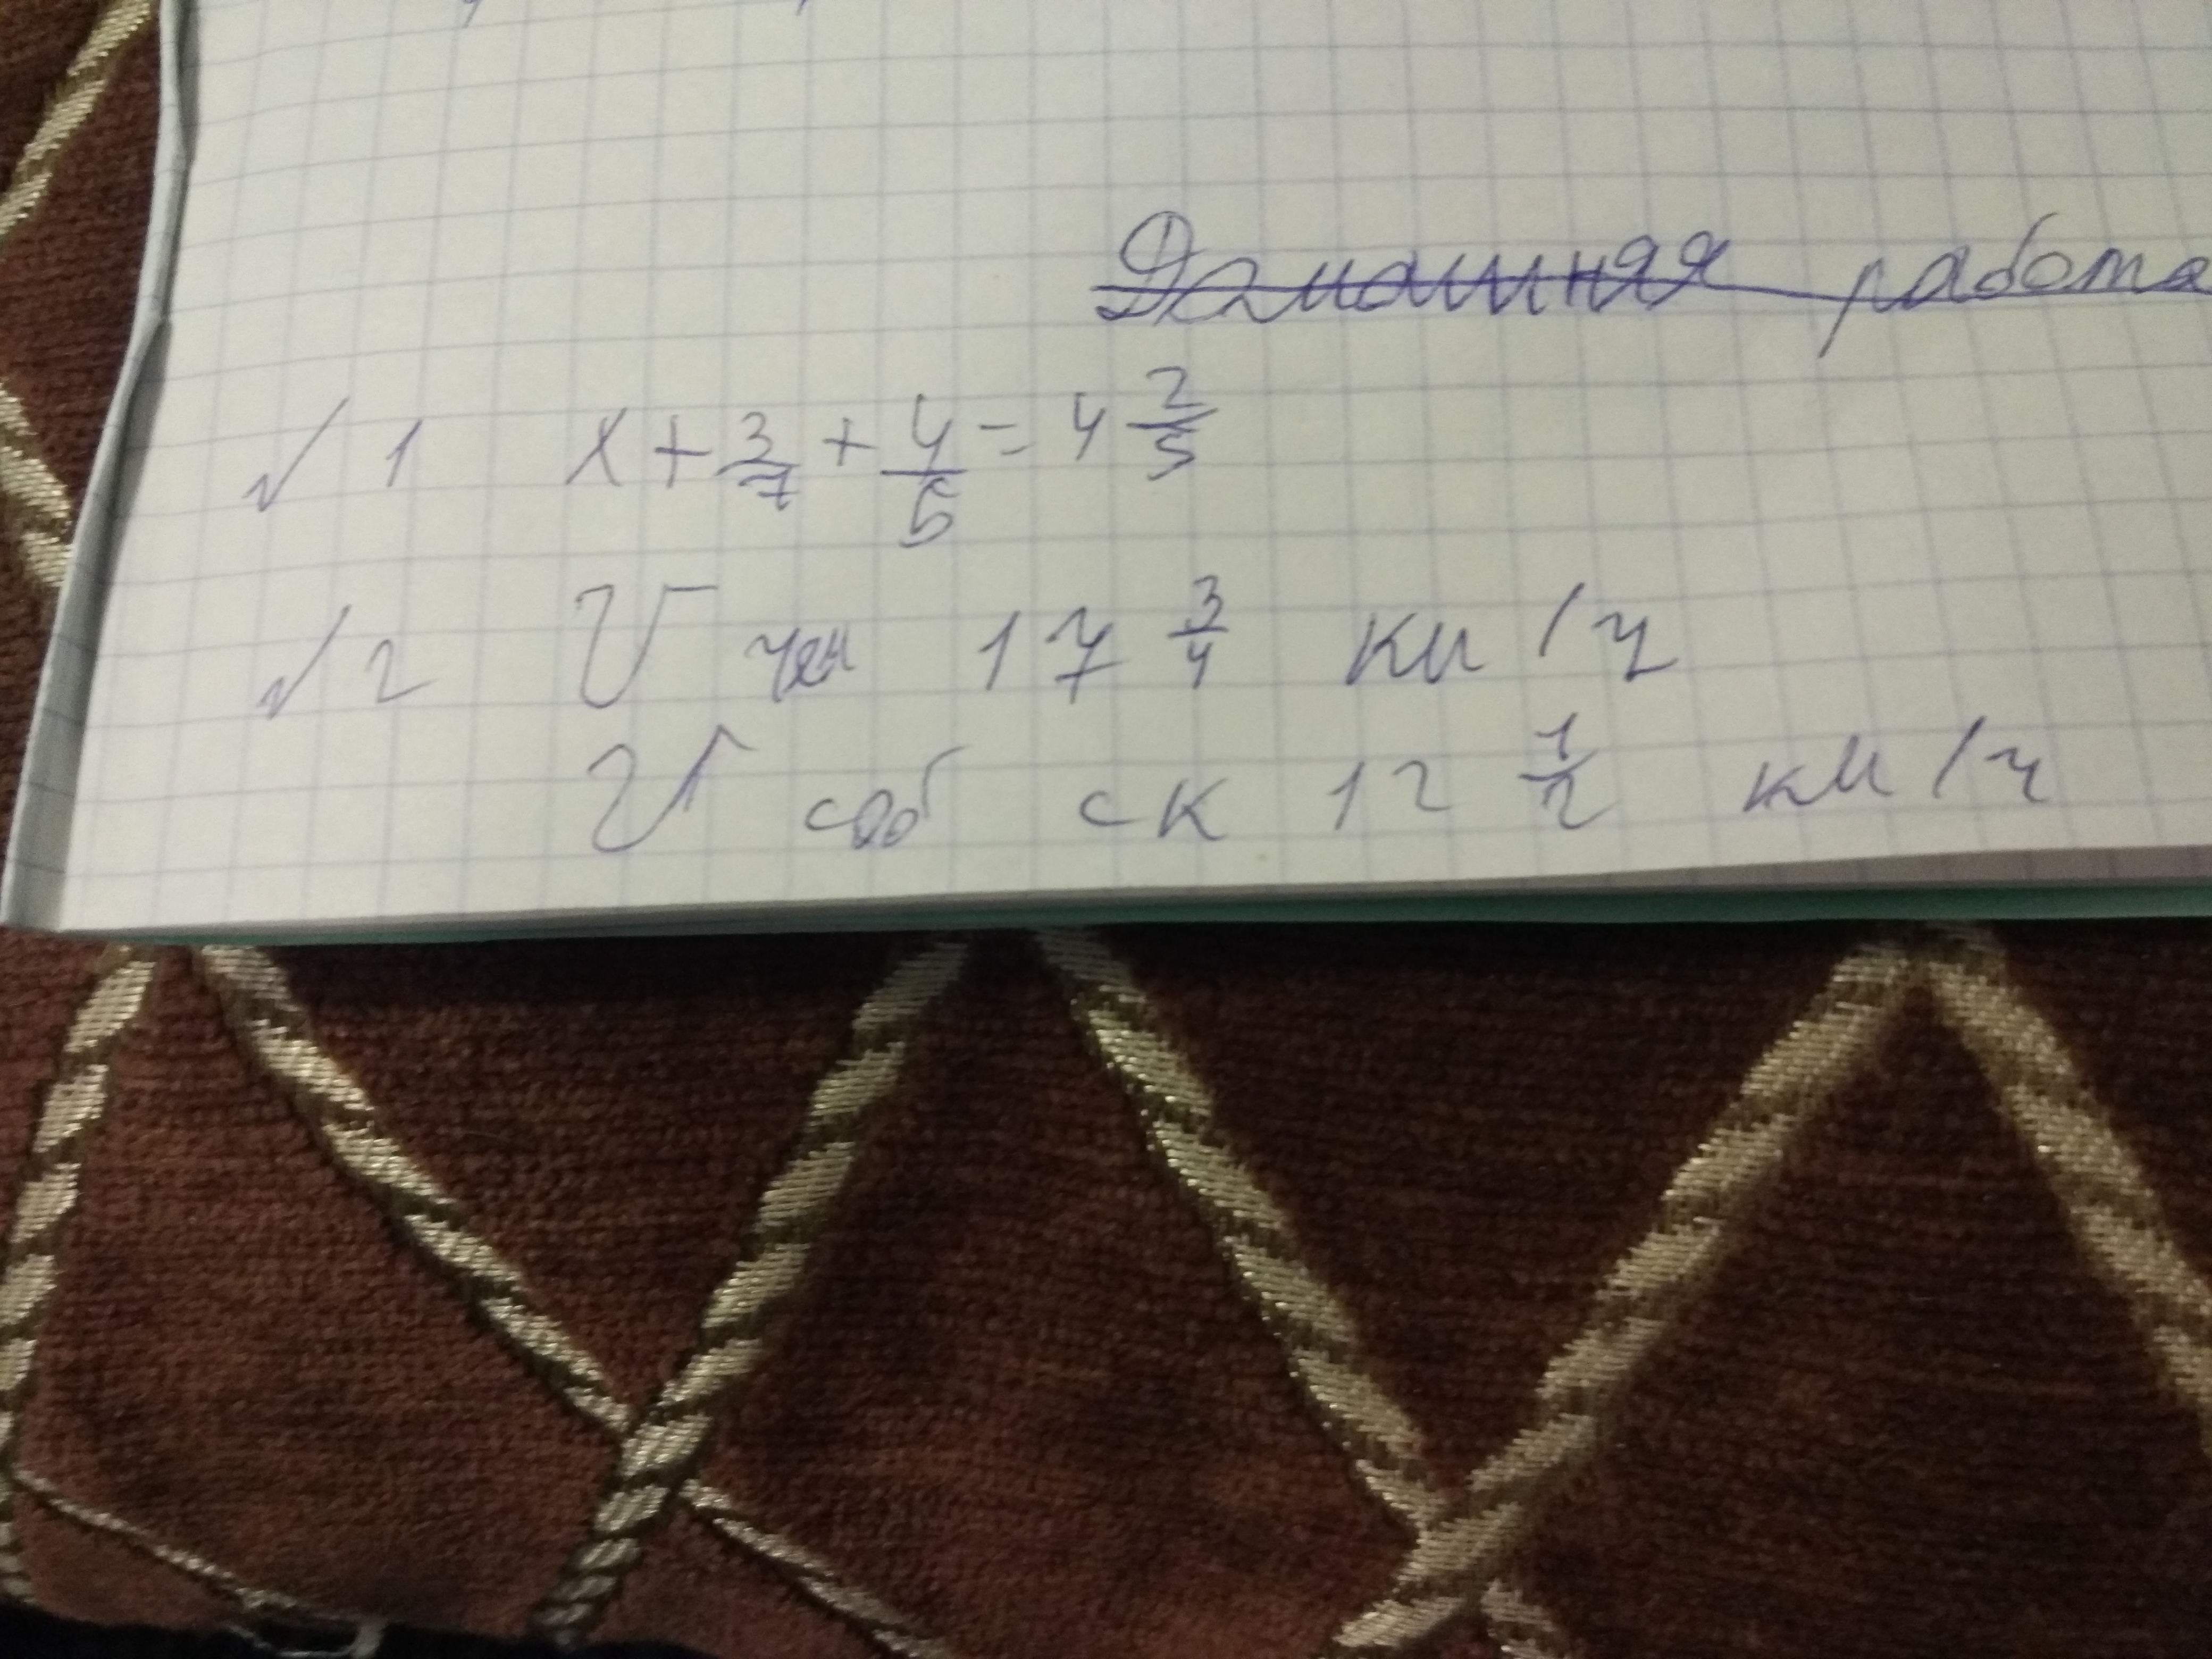 Домашняя работа
√ 1 x + 3/7 + 4/5 = 4 2/5
√ 2 V чел 17 3/4 км/ч
V соб ск 12 1/2 км/ч